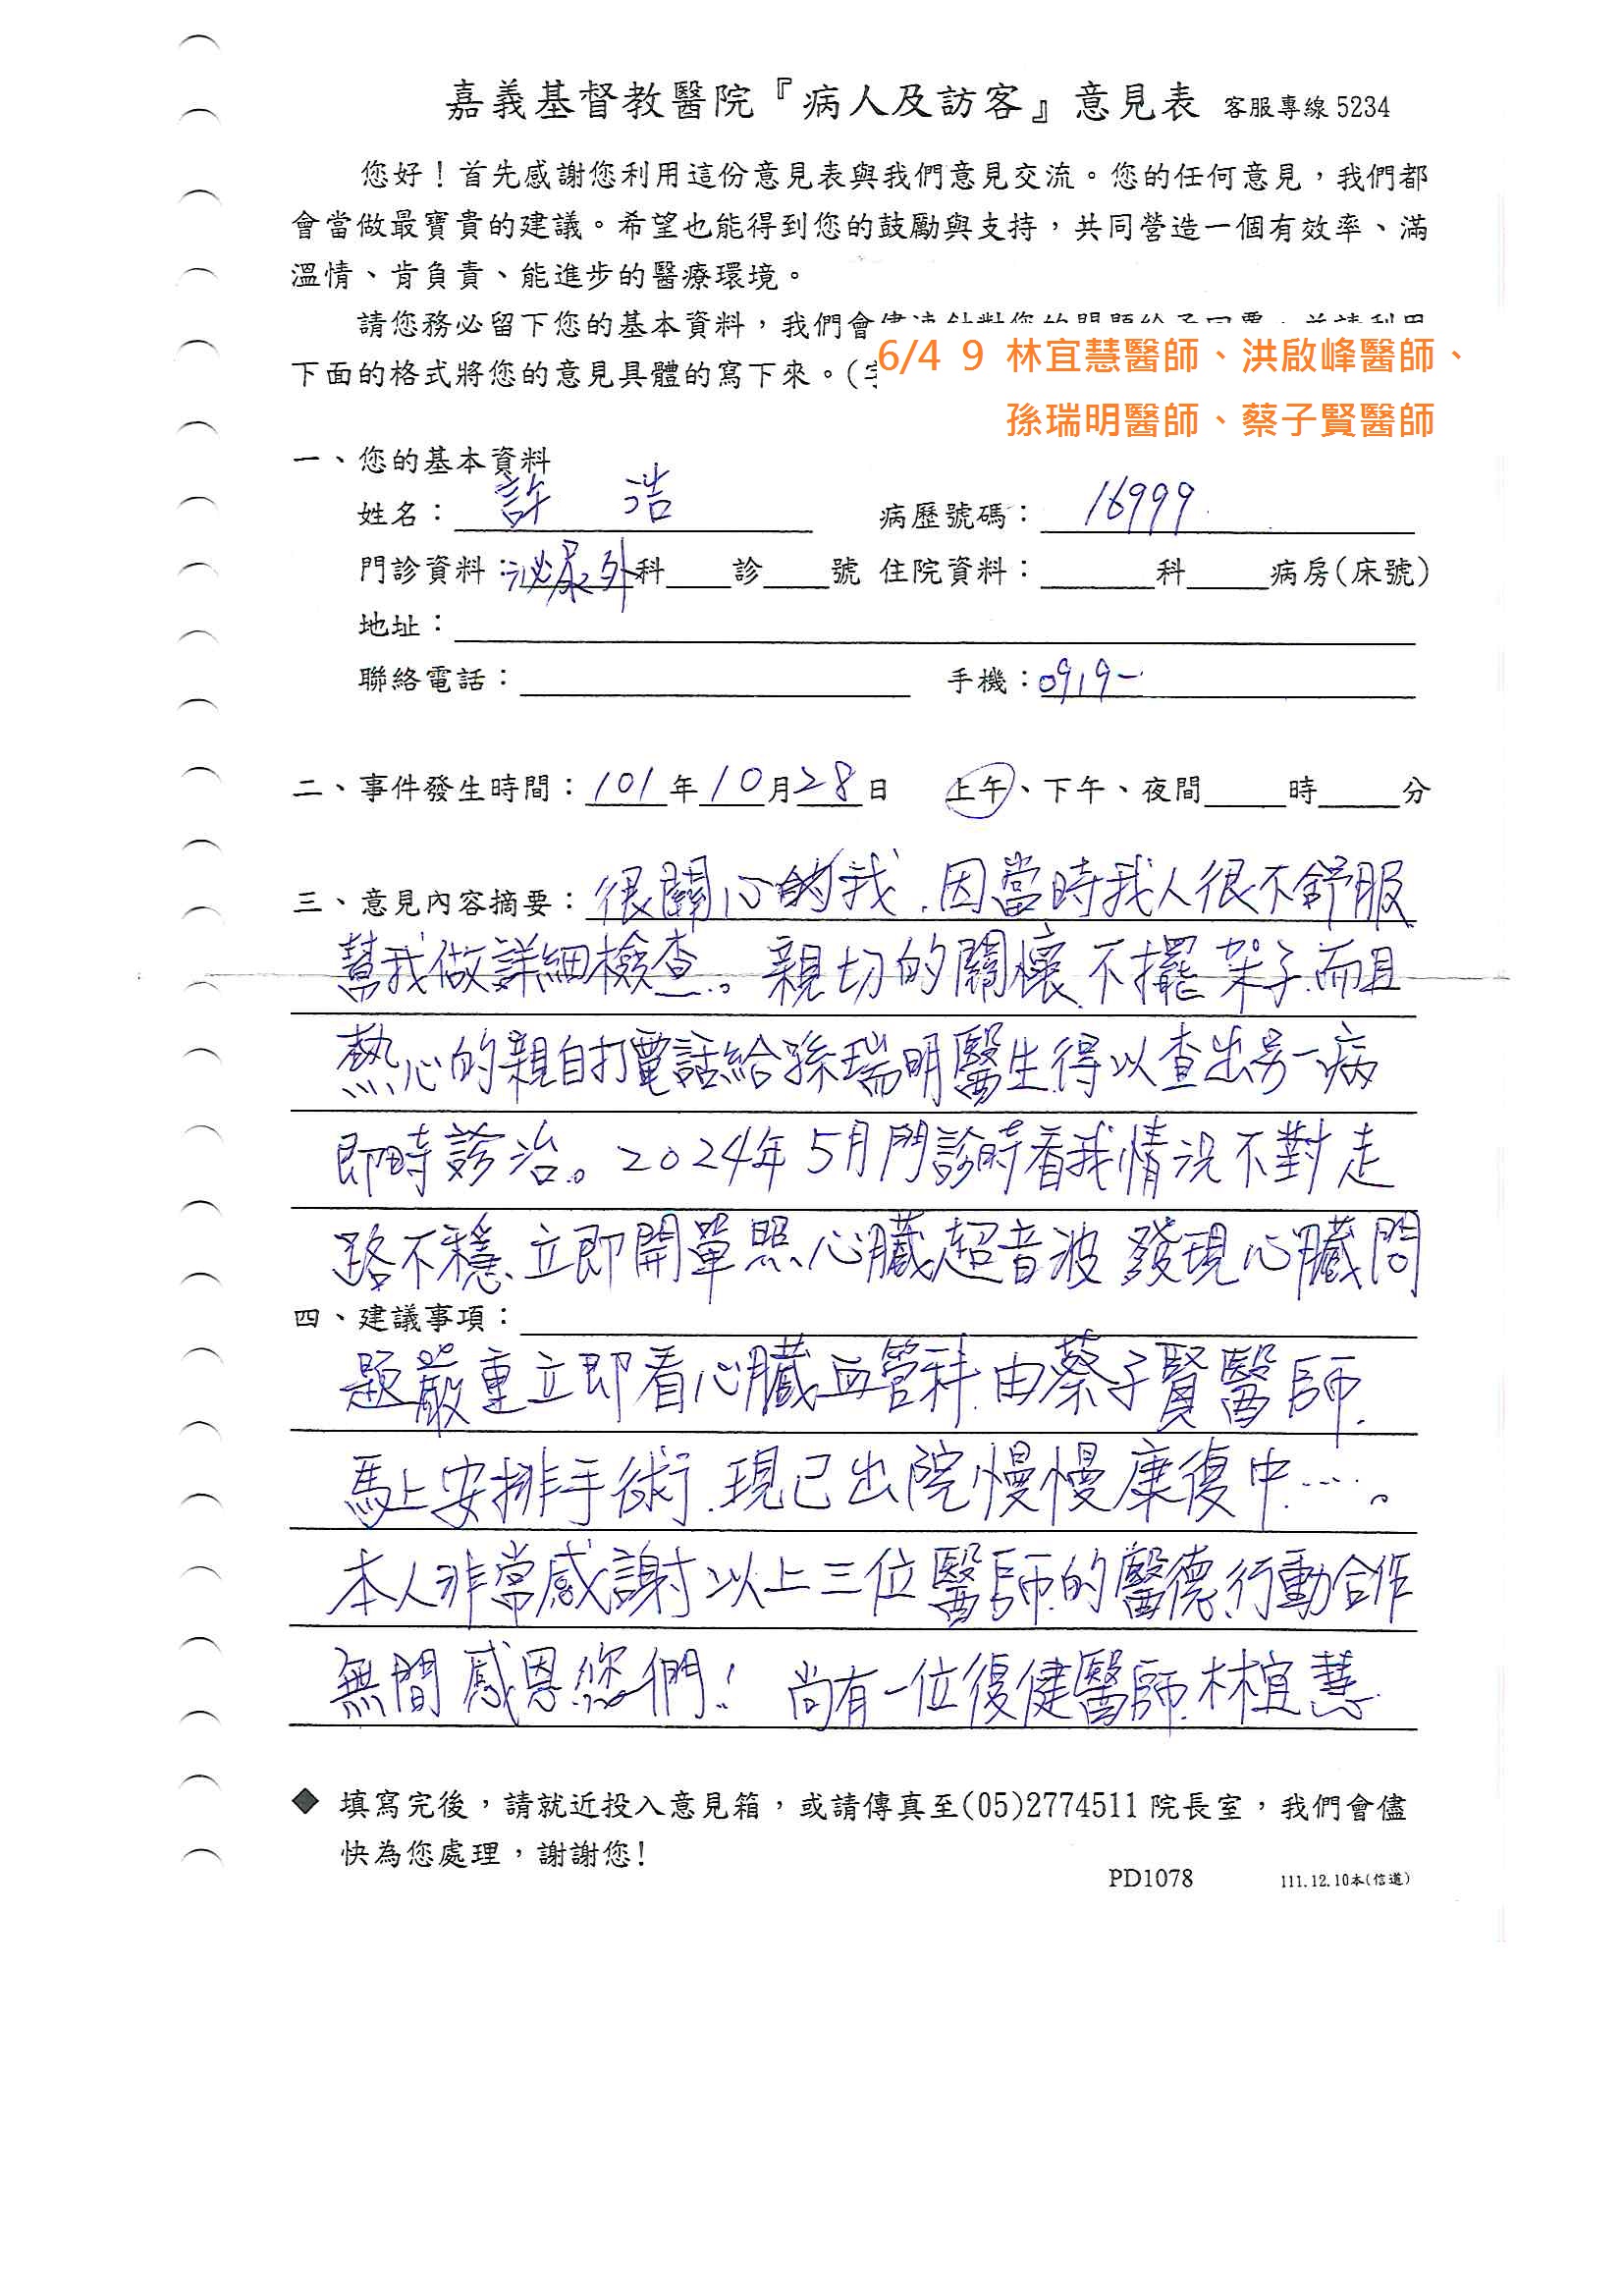 嘉義基督教醫院『病人及訪客』意見表 客服專線 5234
您好！首先感謝您利用這份意見表與我們意見交流。您的任何意見，我們都
會當做最寶貴的建議。希望也能得到您的鼓勵與支持，共同營造一個有效率、滿
溫情、肯負責、能進步的醫療環境。
請您務必留下您的基本資料，我們會
下面的格式將您的意見具體的寫下來。(
6/4 9 林宜慧醫師、洪啟峰醫師、
孫瑞明醫師、蔡子賢醫師
一、您的基本資料
姓名：許 浩 病歷號碼：16999
門診資料：泌尿外科 診 號 住院資料： 科 病房(床號)
地址：
聯絡電話： 手機：0919-
二、事件發生時間：101年10月28日 上午、下午、夜間 時 分
三、意見內容摘要：很關心的我.因當時我人很不舒服
幫我做詳細檢查。親切的關懷.不擺架子.而且
熱心的親自打電話給孫瑞明醫生.得以查出另一病
即時診治。2024年5月門診時看我情況不對走
路不穩.立即開單照心臟超音波 發現心臟問
四、建議事項：
題嚴重立即看心臟血管科.由蔡子賢醫師.
馬上安排手術.現已出院慢慢康復中....。
本人非常感謝以上三位醫師的醫德.行動合作
無間 感恩您們! 尚有一位復健醫師.林宜慧
◆ 填寫完後，請就近投入意見箱，或請傳真至(05)2774511 院長室，我們會儘
快為您處理，謝謝您!
PD1078 111.12.10本(信道)